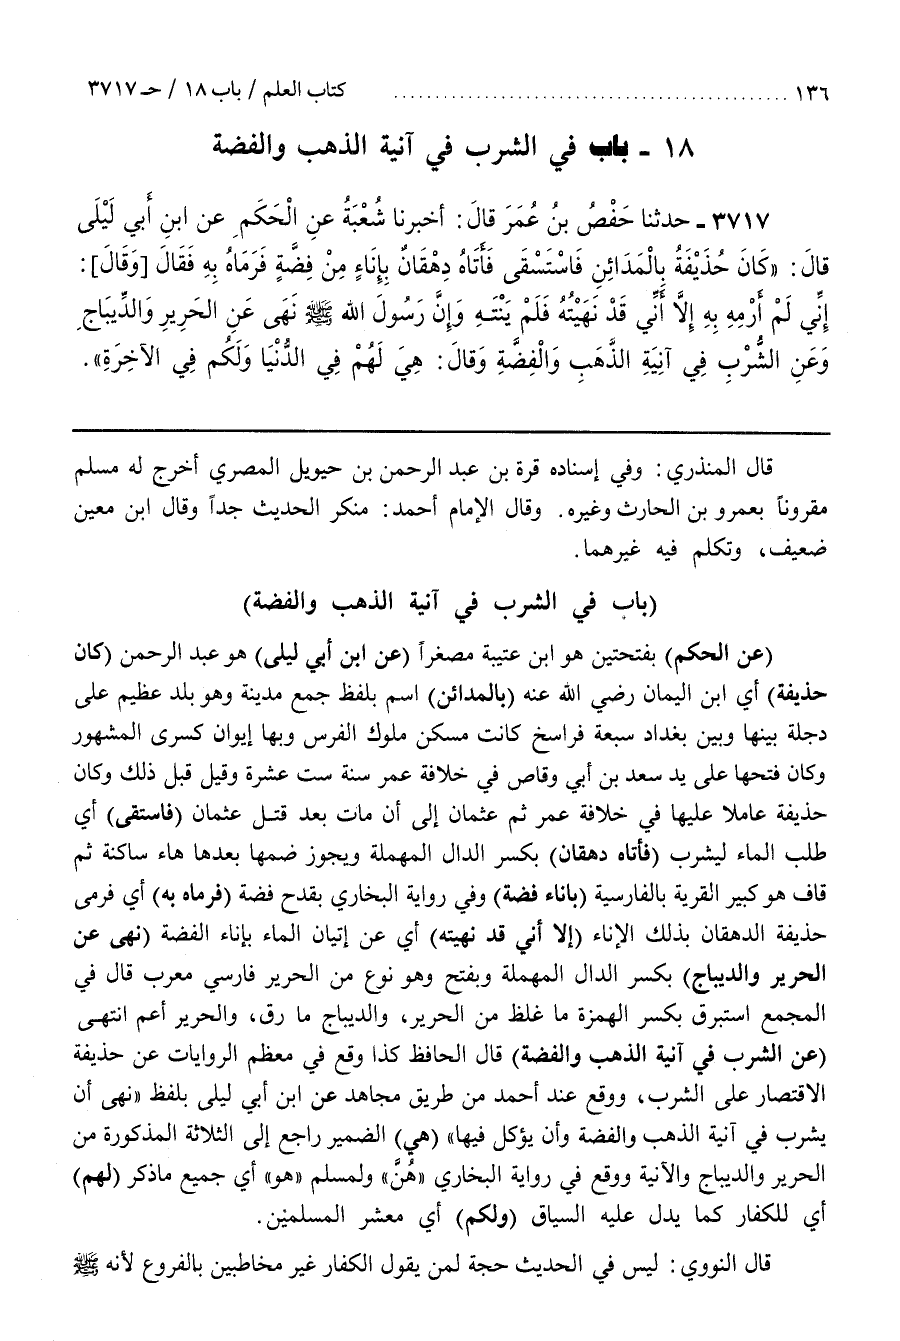 ١٣٦ ................................................ كتاب العلم / باب ١٨ / حـ ٣٧١٧
١٨ - باب في الشرب في آنية الذهب والفضة
٣٧١٧ - حدثنا حَفْصُ بنُ عُمَرَ قالَ: أخبرنا شُعْبَةُ عن الْحَكَمِ عن ابنِ أَبي لَيْلَى
قالَ: «كَانَ حُذَيْفَةُ بِالْمَدَائِنِ فَاسْتَسْقَى فَأَتَاهُ دِهْقَانٌ بِإِنَاءٍ مِنْ فِضَّةٍ فَرَمَاهُ بِهِ فَقَالَ [وَقَالَ]:
إِنِّي لَمْ أَرْمِهِ بِهِ إِلَّا أَنِّي قَدْ نَهَيْتُهُ فَلَمْ يَنْتَهِ وَإِنَّ رَسُولَ الله ﷺ نَهَى عَنِ الحَرِيرِ وَالدِّيبَاجِ
وَعَنِ الشُّرْبِ فِي آنِيَةِ الذَّهَبِ وَالْفِضَّةِ وَقَالَ: هِيَ لَهُمْ فِي الدُّنْيَا وَلَكُم فِي الآخِرَةِ».
قال المنذري: وفي إسناده قرة بن عبد الرحمن بن حيويل المصري أخرج له مسلم
مقروناً بعمرو بن الحارث وغيره. وقال الإمام أحمد: منكر الحديث جداً وقال ابن معين
ضعيف، وتكلم فيه غيرهما.
(باب في الشرب في آنية الذهب والفضة)
(عن الحكم) بفتحتين هو ابن عتيبة مصغراً (عن ابن أبي ليلى) هو عبد الرحمن (كان
حذيفة) أي ابن اليمان رضي الله عنه (بالمدائن) اسم بلفظ جمع مدينة وهو بلد عظيم على
دجلة بينها وبين بغداد سبعة فراسخ كانت مسكن ملوك الفرس وبها إيوان كسرى المشهور
وكان فتحها على يد سعد بن أبي وقاص في خلافة عمر سنة ست عشرة وقيل قبل ذلك وكان
حذيفة عاملا عليها في خلافة عمر ثم عثمان إلى أن مات بعد قتل عثمان (فاستقى) أي
طلب الماء ليشرب (فأتاه دهقان) بكسر الدال المهملة ويجوز ضمها بعدها هاء ساكنة ثم
قاف هو كبير القرية بالفارسية (باناء فضة) وفي رواية البخاري بقدح فضة (فرماه به) أي فرمى
حذيفة الدهقان بذلك الإناء (إلا أني قد نهيته) أي عن إتيان الماء بإناء الفضة (نهى عن
الحرير والديباج) بكسر الدال المهملة وبفتح وهو نوع من الحرير فارسي معرب قال في
المجمع استبرق بكسر الهمزة ما غلظ من الحرير، والديباج ما رق، والحرير أعم انتهى
(عن الشرب في آنية الذهب والفضة) قال الحافظ كذا وقع في معظم الروايات عن حذيفة
الاقتصار على الشرب، ووقع عند أحمد من طريق مجاهد عن ابن أبي ليلى بلفظ «نهى أن
يشرب في آنية الذهب والفضة وأن يؤكل فيها» (هي) الضمير راجع إلى الثلاثة المذكورة من
الحرير والديباج والآنية ووقع في رواية البخاري «هُنَّ» ولمسلم «هو» أي جميع ماذكر (لهم)
أي للكفار كما يدل عليه السياق (ولكم) أي معشر المسلمين.
قال النووي: ليس في الحديث حجة لمن يقول الكفار غير مخاطبين بالفروع لأنه ﷺ